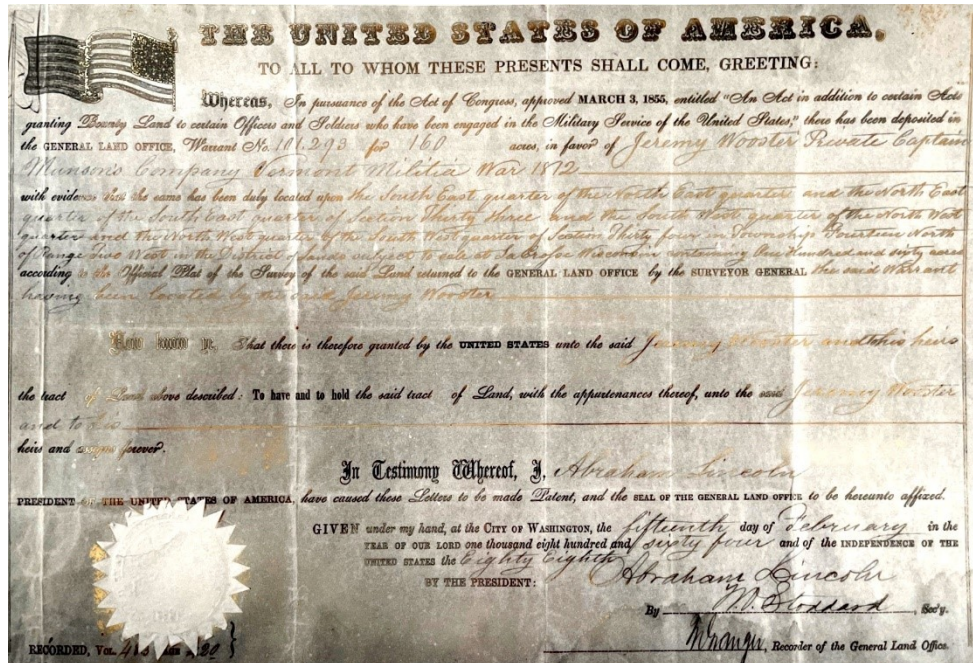 THE UNITED STATES OF AMERICA.
TO ALL TO WHOM THESE PRESENTS SHALL COME, GREETING:
Whereas, In pursuance of the Act of Congress, approved MARCH 3, 1855, entitled "An Act in addition to certain Acts
granting Bounty Land to certain Officers and Soldiers who have been engaged in the Military Service of the United States," there has been deposited in
the GENERAL LAND OFFICE, Warrant No. 101.293 for 160 acres, in favor of Jeremy Wooster Private Captain
Munson's Company Vermont Militia War 1812
with evidence that the same has been duly located upon the South East quarter of the North East quarter and the North East
quarter of the South East quarter of Section Thirty three and the South West quarter of the North West
quarter and the North West quarter of the South West quarter of Section Thirty four in Township Fourteen North
of Range Two West in the District of Lands subject to sale at La Crosse Wisconsin containing One Hundred and sixty acres
according to the Official Plat of the Survey of the said Land returned to the GENERAL LAND OFFICE by the SURVEYOR GENERAL the said Warrant
having been located by the said Jeremy Wooster
Now know ye, That there is therefore granted by the UNITED STATES unto the said Jeremy Wooster and to his heirs
the tract of Land above described: To have and to hold the said tract of Land, with the appurtenances thereof, unto the said Jeremy Wooster
and to his
heirs and assigns forever.
In Testimony Whereof, I, Abraham Lincoln
PRESIDENT OF THE UNITED STATES OF AMERICA, have caused these Letters to be made Patent, and the SEAL OF THE GENERAL LAND OFFICE to be hereunto affixed.
GIVEN under my hand, at the CITY OF WASHINGTON, the fifteenth day of February in the
YEAR OF OUR LORD one thousand eight hundred and sixty four and of the INDEPENDENCE OF THE
UNITED STATES the Eighty Eighth
BY THE PRESIDENT: Abraham Lincoln
By W. O. Stoddard, Sec'y.
RECORDED, Vol. Recorder of the General Land Office.